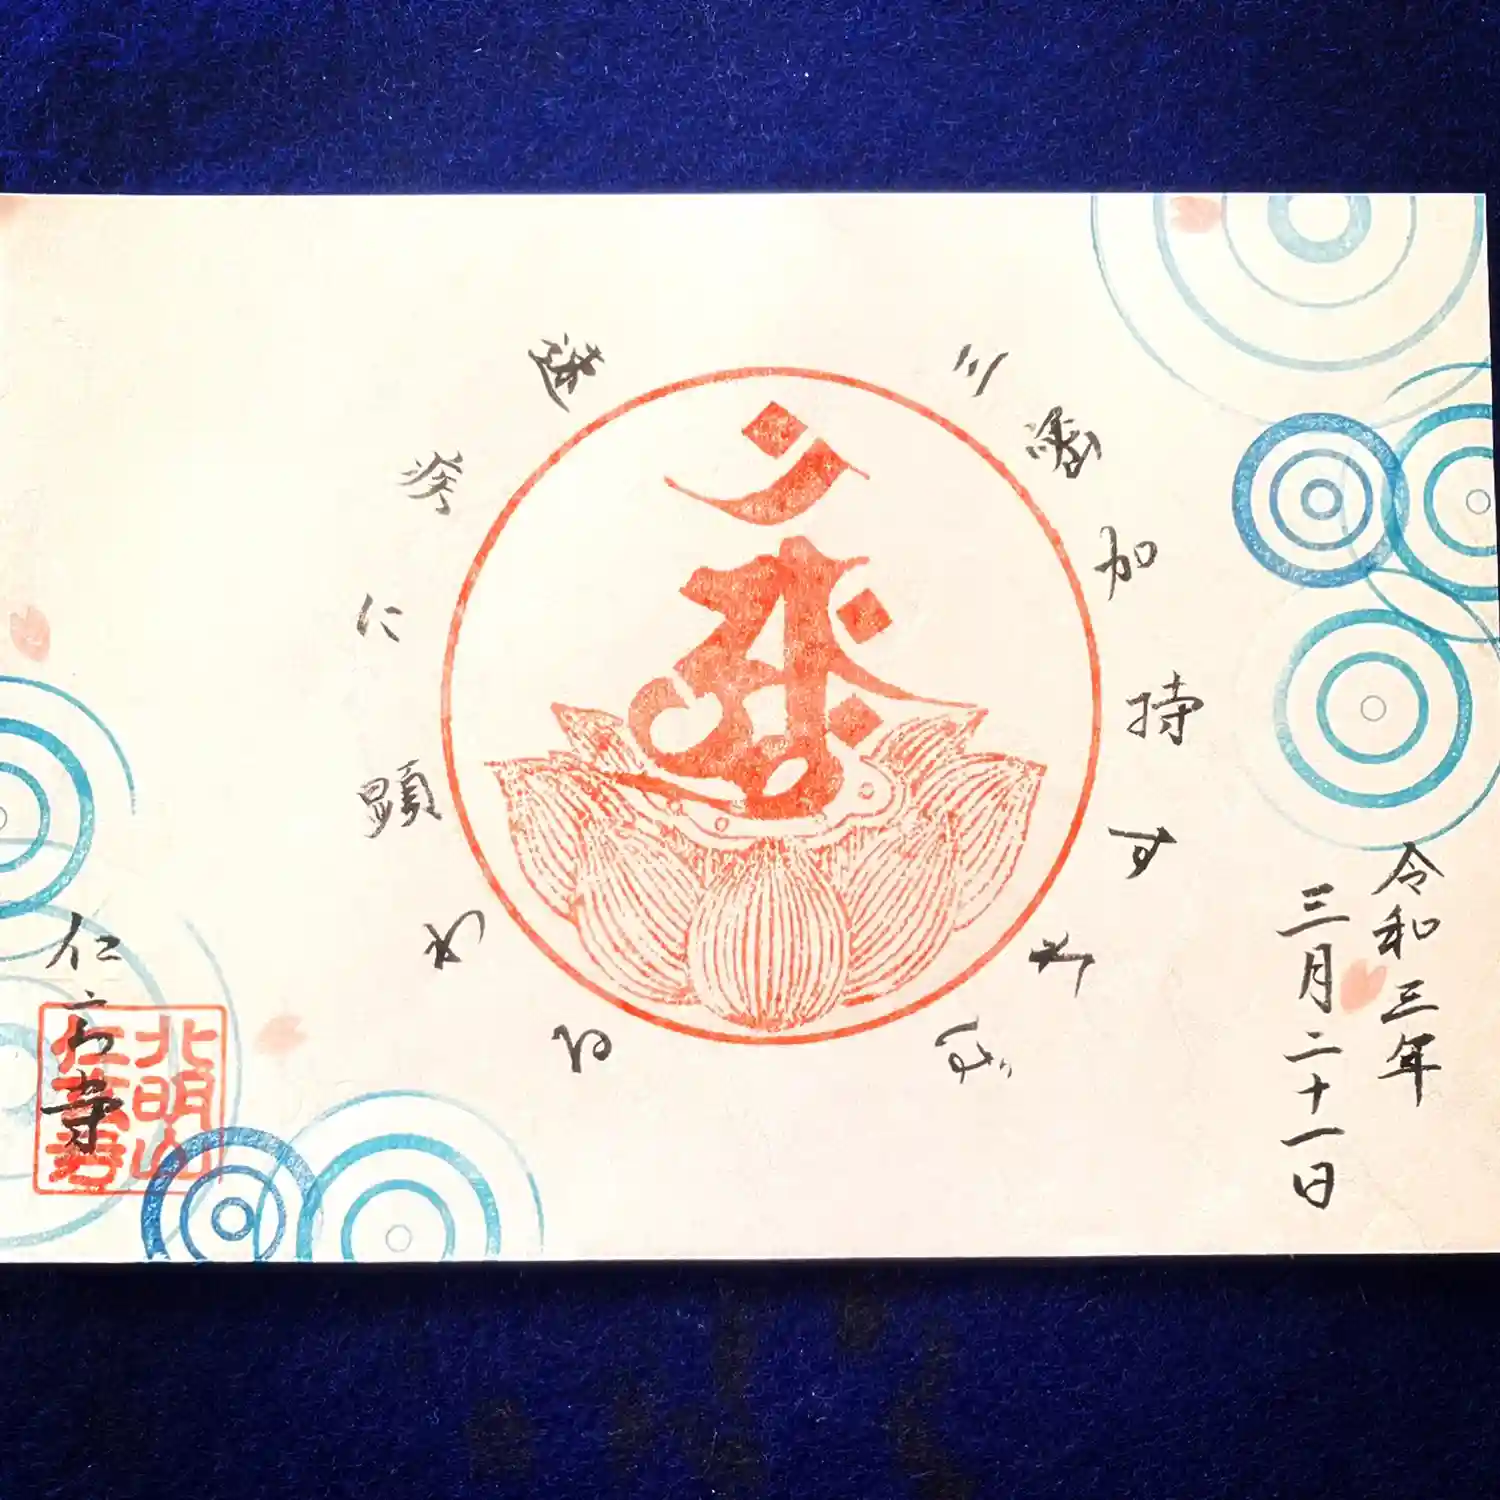 三密加持すれば
速疾に顕わる
令和三年
三月二十一日
仁 寺
北明山